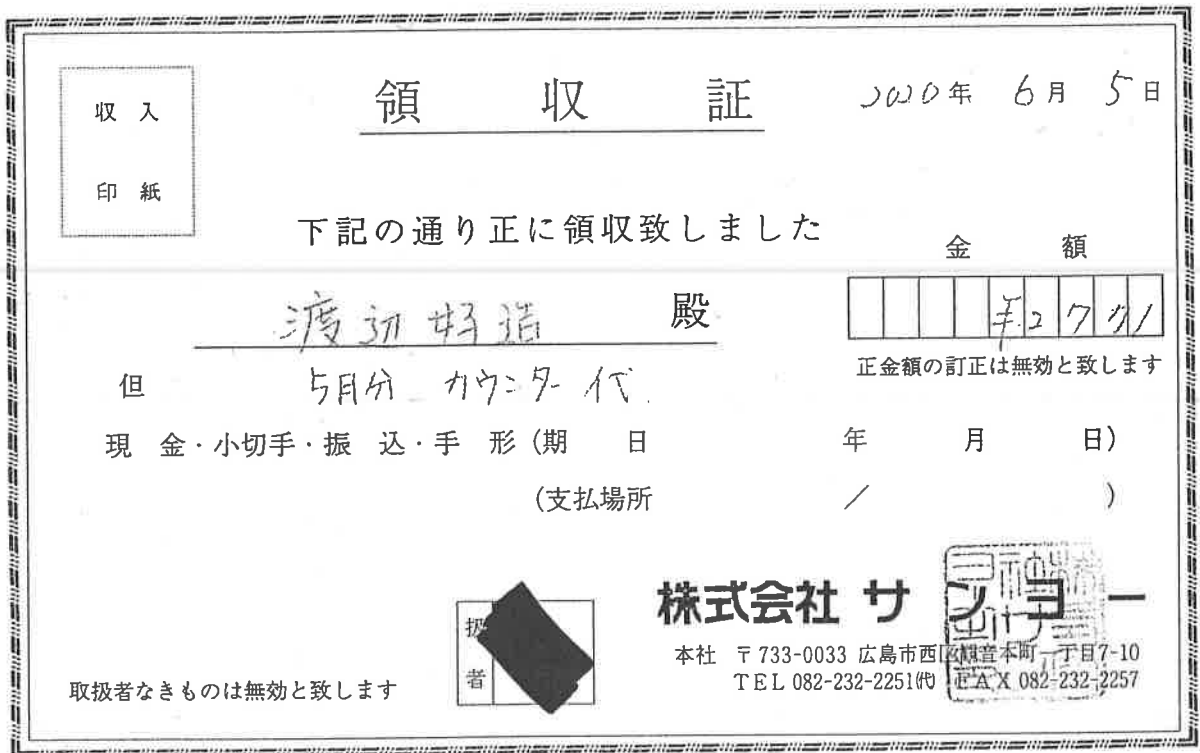 収入
印紙
領収証
2020年 6月 5日
下記の通り正に領収致しました
金額
渡辺好造 殿
¥2771
正金額の訂正は無効と致します
但 5月分 カウンター代
現金・小切手・振込・手形(期日 年 月 日)
(支払場所 / )
株式会社サンヨー
扱者
本社 〒733-0033 広島市西区観音本町一丁目7-10
TEL 082-232-2251㈹ FAX 082-232-2257
取扱者なきものは無効と致します